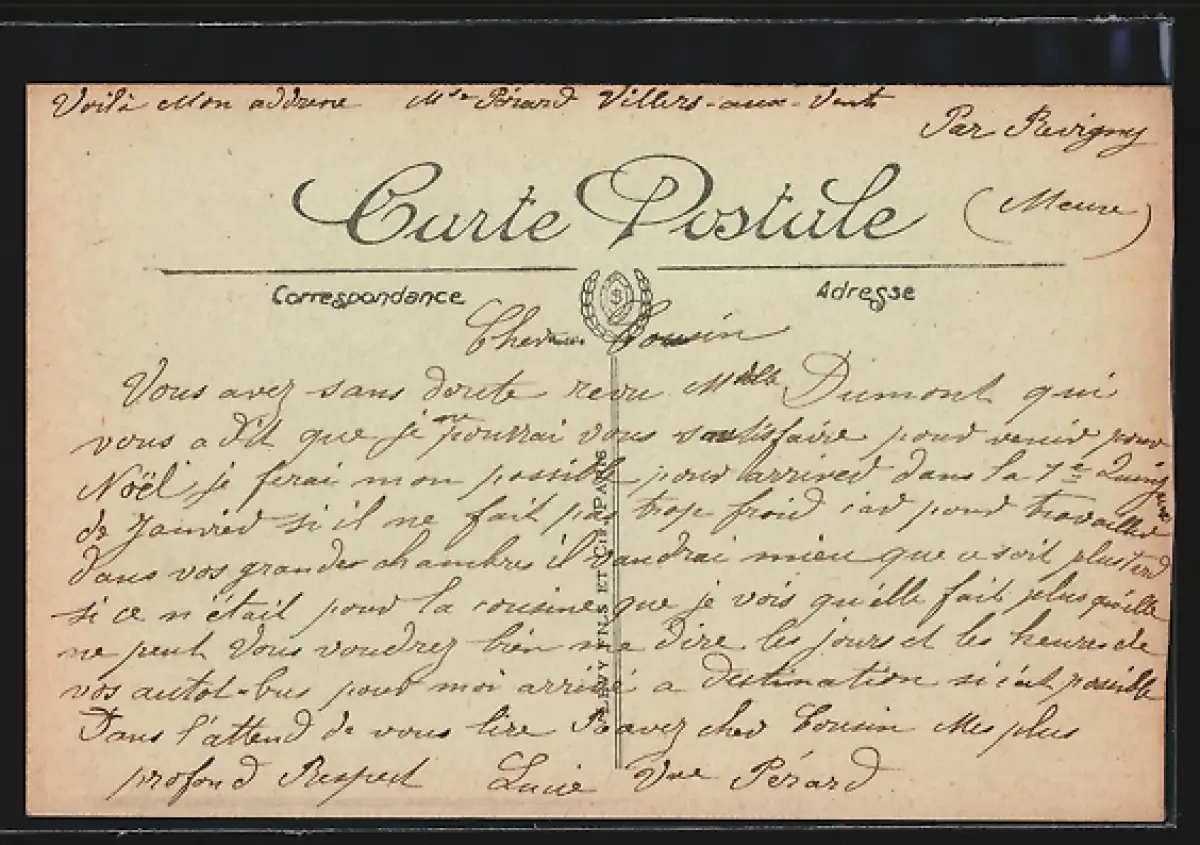 Voilà Mon addresse Mme Pérard Villers-aux-Vents
Par Revigny
(Meuse)
Carte Postale
Correspondance
Adresse
Cher Cousin
Vous avez sans doute revu Mlle Dumont qui
vous a dit que je pourrai vous satisfaire pour venir pour
Noël je ferai mon possible pour arriver dans la 1re Quinzaine
de Janvier si il ne fait pas trop froid car pour travailler
dans vos grandes chambres il vaudrai mieu que ce soit plus tard
si ce n'était pour la cousine que je vois qu'elle fait plus qu'elle
ne peut Vous voudrez bien me dire les jours et les heures de
vos autot-bus pour moi arrivé a destination si c'est possible
Dans l'attend de vous lire Recevez cher Cousin Mes plus
profond Respect Lucie Vve Pérard
LEVY FILS ET Cie PARIS